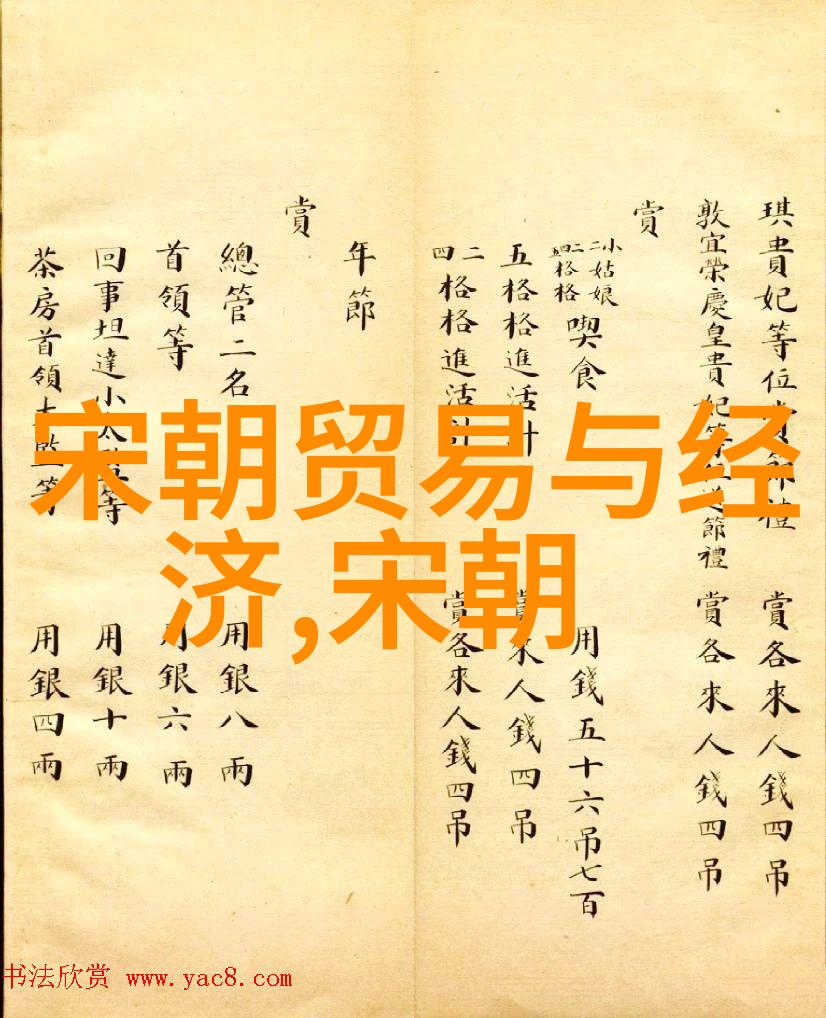 宋朝贸易与经
济,宋朝
琪貴妃等位賞節禮 賞各來人錢四吊
敦宜榮慶皇貴妃等位送節禮 賞各來人錢四吊
賞
姑娘 格格 喫食 用錢五十六吊七百
五格格進活計 賞來人錢四吊
二四格格進活計 賞各來人錢四吊
年節
賞
總管二名 用銀八兩
首領等 用銀六兩
回事坦達小太監等 用銀十兩
茶房首領太監等 用銀四兩
书法欣赏 www.yac8.com